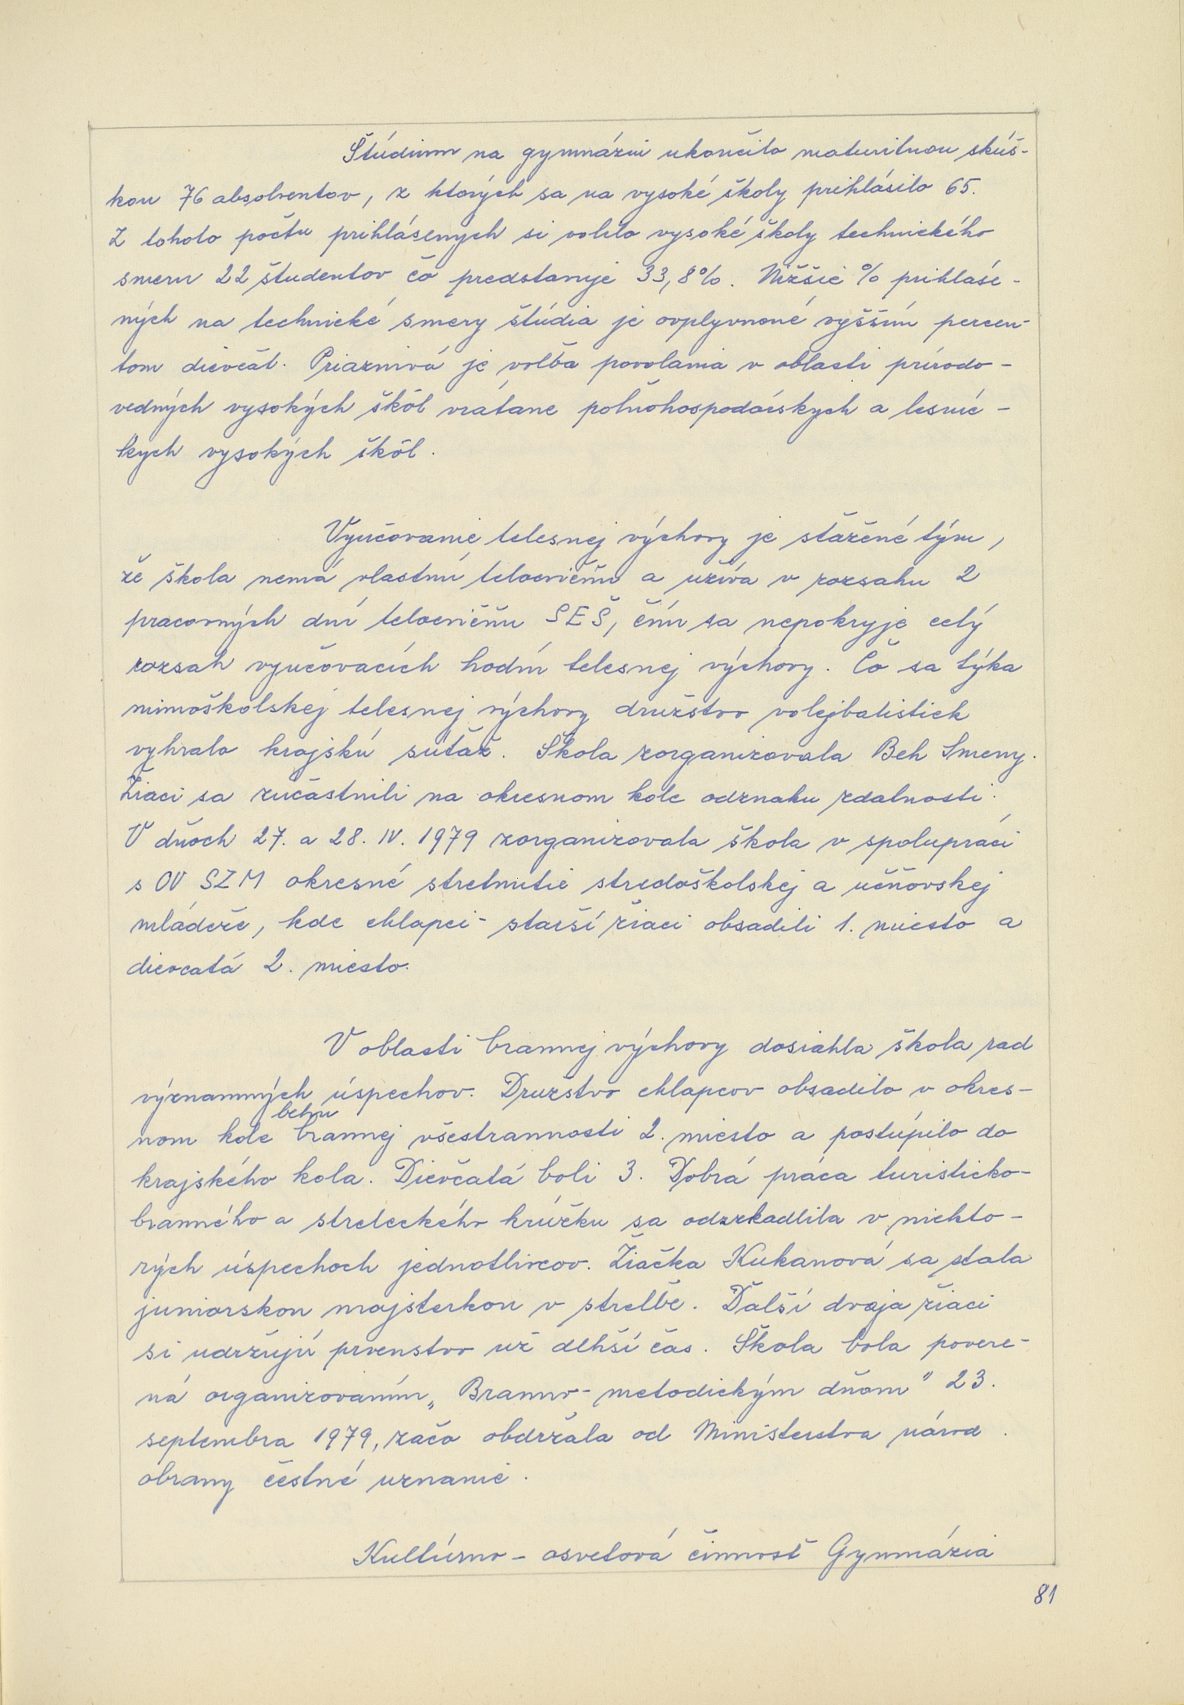 Štúdium na gymnáziu ukončilo maturitnou skúš-
kou 76 absolventov, z ktorých sa na vysoké školy prihlásilo 65.
Z tohoto počtu prihlásených si volilo vysoké školy technického
smeru 22 študentov čo predstavuje 33,8%. Nižšie % prihláse-
ných na technické smery štúdia je ovplyvnené vyšším percen-
tom dievčat. Priaznivá je voľba povolania v oblasti prírodo-
vedných vysokých škôl vrátane poľnohospodárskych a lesníc-
kych vysokých škôl.
Vyučovanie telesnej výchovy je sťažené tým,
že škola nemá vlastnú telocvičňu a užíva v rozsahu 2
pracovných dní telocvičňu SEŠ, čím sa nepokryje celý
rozsah vyučovacích hodín telesnej výchovy. Čo sa týka
mimoškolskej telesnej výchovy družstvo volejbalistiek
vyhralo krajskú súťaž. Škola zorganizovala Beh Smeny.
Žiaci sa zúčastnili na okresnom kole odznaku zdatnosti.
V dňoch 27. a 28. IV. 1979 zorganizovala škola v spolupráci
s OV SZM okresné stretnutie stredoškolskej a učňovskej
mládeže, kde chlapci - starší žiaci obsadili 1. miesto a
dievčatá 2. miesto.
V oblasti brannej výchovy dosiahla škola rad
významných úspechov. Družstvo chlapcov obsadilo v okres-
nom kole behu brannej všestrannosti 2. miesto a postúpilo do
krajského kola. Dievčatá boli 3. Dobrá práca turisticko-
branného a streleckého krúžku sa odzrkadlila v niekto-
rých úspechoch jednotlivcov. Žiačka Kukanová sa stala
juniorskou majsterkou v streľbe. Ďalší dvaja žiaci
si udržujú prvenstvo už dlhší čas. Škola bola povere-
ná organizovaním „Branno-metodickým dňom" 23.
septembra 1979, začo obdržala od Ministerstva národ.
obrany čestné uznanie.
Kultúrno - osvetová činnosť Gymnázia
81